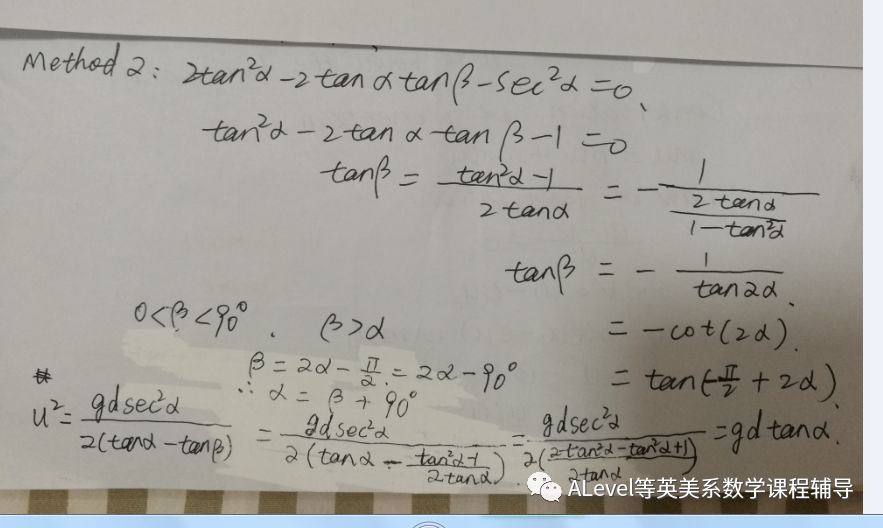 Method 2: 2tan²α - 2tanα tanβ - sec²α = 0、
tan²α - 2tanα tanβ - 1 = 0
tanβ = (tan²α - 1)/(2tanα) = - 1/((2tanα)/(1 - tan²α))
tanβ = - 1/(tan2α).
0<β<90°. β>α = -cot(2α).
β = 2α - π/2 = 2α - 90° = tan(-π/2 + 2α).
∴ α = β + 90°
u² = (gd sec²α)/(2(tanα - tanβ)) = (gd sec²α)/(2(tanα - (tan²α - 1)/(2tanα))) = (gd sec²α)/(2((2tan²α - tan²α + 1)/(2tanα))) = gd tanα.
ALevel等英美系数学课程辅导